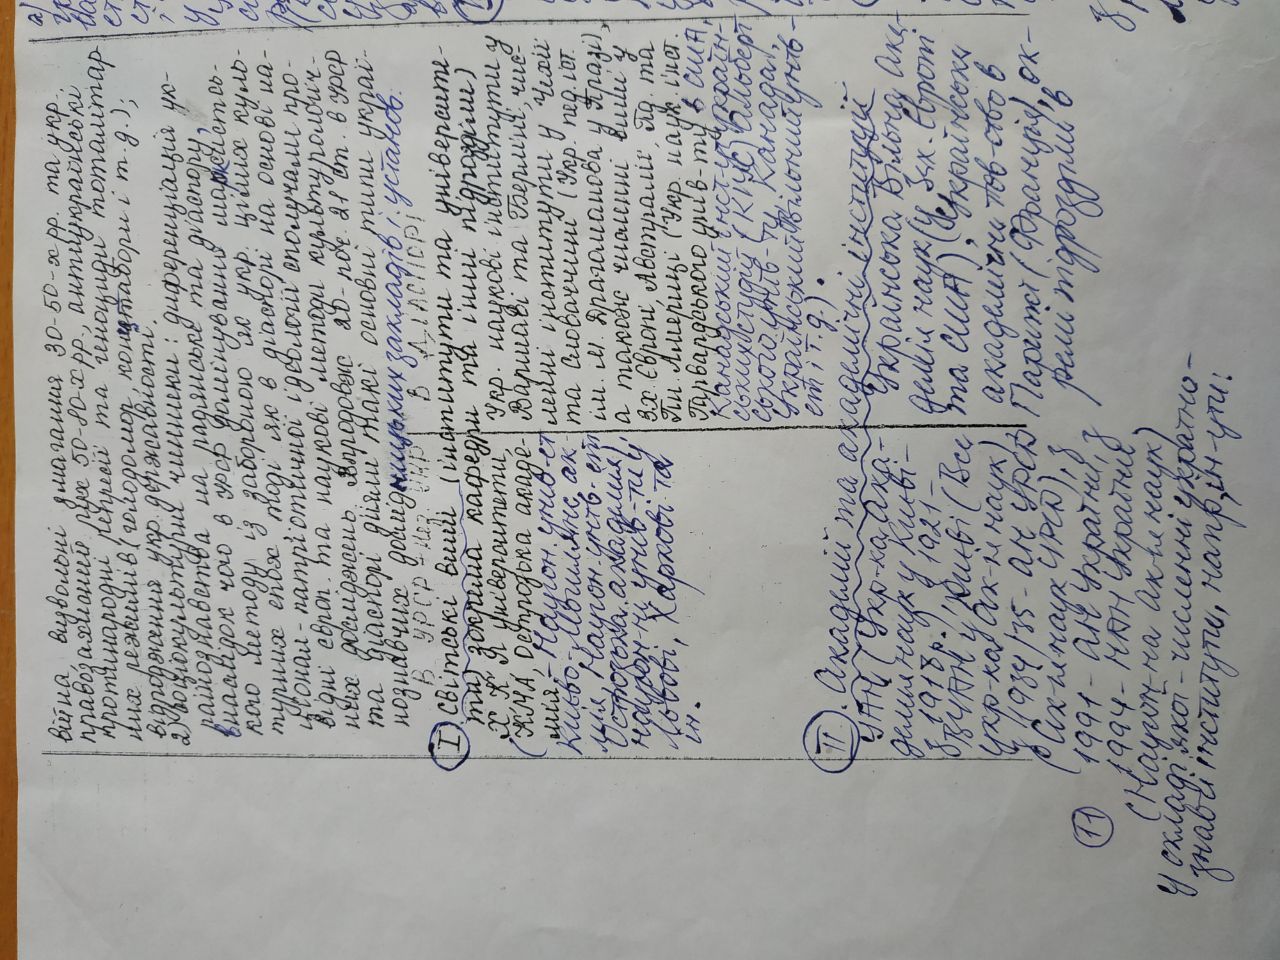 війна визвольні змагання 30-50-х рр. та укр.
правозахисний рух 50-80-х рр., антиукраїнські
протинародні репресії та геноциди тоталітар-
них режимів (голодомор, концтабори і т.д.);
відродження укр. державності.
2) соціокультурні чинники: диференціація ук-
раїнознавства на радянське та діаспору,
внаслідок чого в УРСР домінування марксистсь-
кого методу із забороною як укр. цілих куль-
турних епох, тоді як в діаспорі на основі на-
ціонал-патріотичної ідеології сполучали про-
відні європ. та наукові методи культурологіч-
них досліджень. Впродовж 20-поч. 21 ст. в УРСР
та діаспорі діяли такі основні типи украї-
нознавчих дослідницьких закладів і установ.
В УРСР - Нез. УКР В ДІАСПОРІ
I Світські вищі (інститути та університе-
ти) зокрема кафедри та інши підрозділи)
Х, К, Л університети,
(КМА, Острозька акаде-
мія. - Націон. унів-ет
Києво-Могилянс. ак-
мія, Націон. унів-ет
Острозька академія),
націон-ні унів-ти у
Львові, Харкові та
ін.
Укр. наукові інститути у
Варшаві та Берліні, чис-
ленні інститути у Чехії
та Словаччині (Укр. пед. іст.
ім. М. Драгоманова у Празі),
а також численні вищі у
Зх. Європі, Австралії, Пд. та
Пн. Америці (Укр. наук. інст.
Гарвардського унів-ту в США,
Канадський інст-ут україн-
ських студій (КІУС) Альберт
ського унів-ту, Канада,
Український Вільний унів-
ет і т.д.).
II. Академії та академічні інституції
УАН (Укр-ка Ака-
демія наук у Києві -
з 1918р.) з 1921-
ВУАН у Києві (Все
укр-ка Ак-ія наук)
з 1934/35 - АН УРСР
(Ак-ія наук УРСР), з
1991 - АН України, з
1994 - НАН України
(Націон-на Ак-ія наук)
у складі якої - численні україно-
знавчі інститути, напр, ін-ути:
Українська Вільна Ака-
демія наук (у Зах. Європі
та США), Українське
академічне тов-ство в
Парижі (Франція), ок-
ремі підрозділи в
11